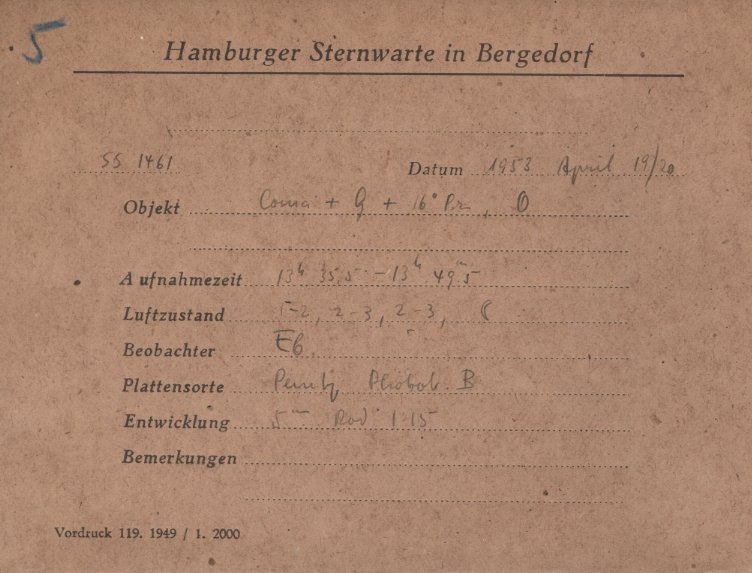 5
Hamburger Sternwarte in Bergedorf
SS 1461 Datum 1953 April 19/20
Objekt Coma + G + 16° Pr,
Aufnahmezeit 13h 35,5 - 13h 49m,5
Luftzustand 2-3, 2-3,
Beobachter
Plattensorte B
Entwicklung 5m Rod 1:15
Bemerkungen
Vordruck 119. 1949 / 1. 2000